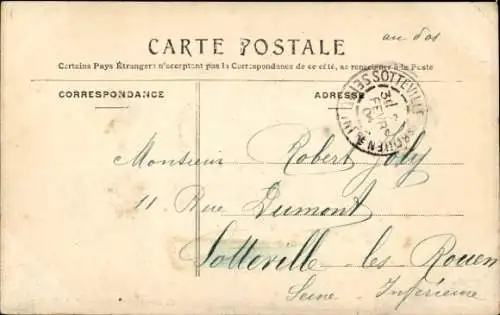 au dos
CARTE POSTALE
Certains Pays Étrangers n'acceptent pas la Correspondance de ce côté, se renseigner à la Poste
CORRESPONDANCE
ADRESSE
SOTTEVILLE
FEVR
04
Monsieur Robert Joly
11 Rue Dumont
Sotteville-les-Rouen
Seine-Inférieure